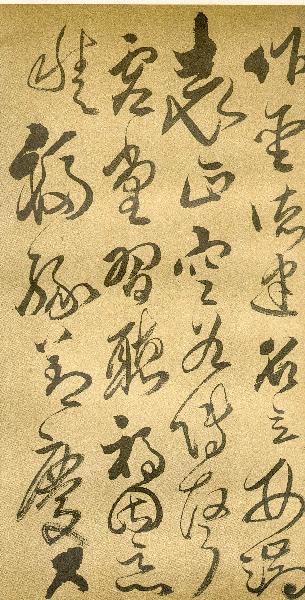 作聖德建名立形端
表正空谷傳聲
虛堂習聽禍因惡
積福緣善慶尺